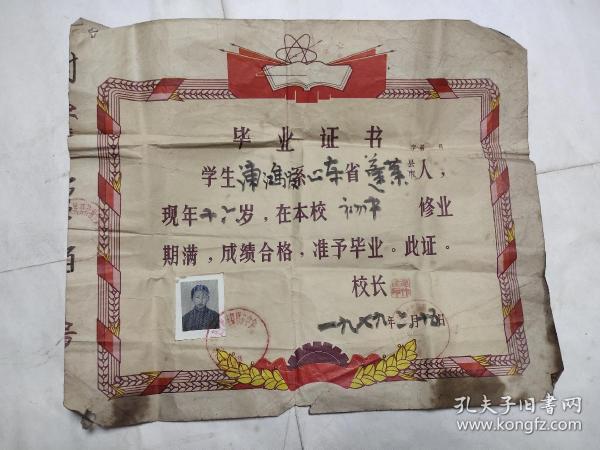 毕业证书
字第 号
学生 山东省蓬莱县市人，
现年十六岁，在本校初中修业
期满，成绩合格，准予毕业。此证。
校长
一九七九年二月十五日
孔夫子旧书网
www.kongfz.com